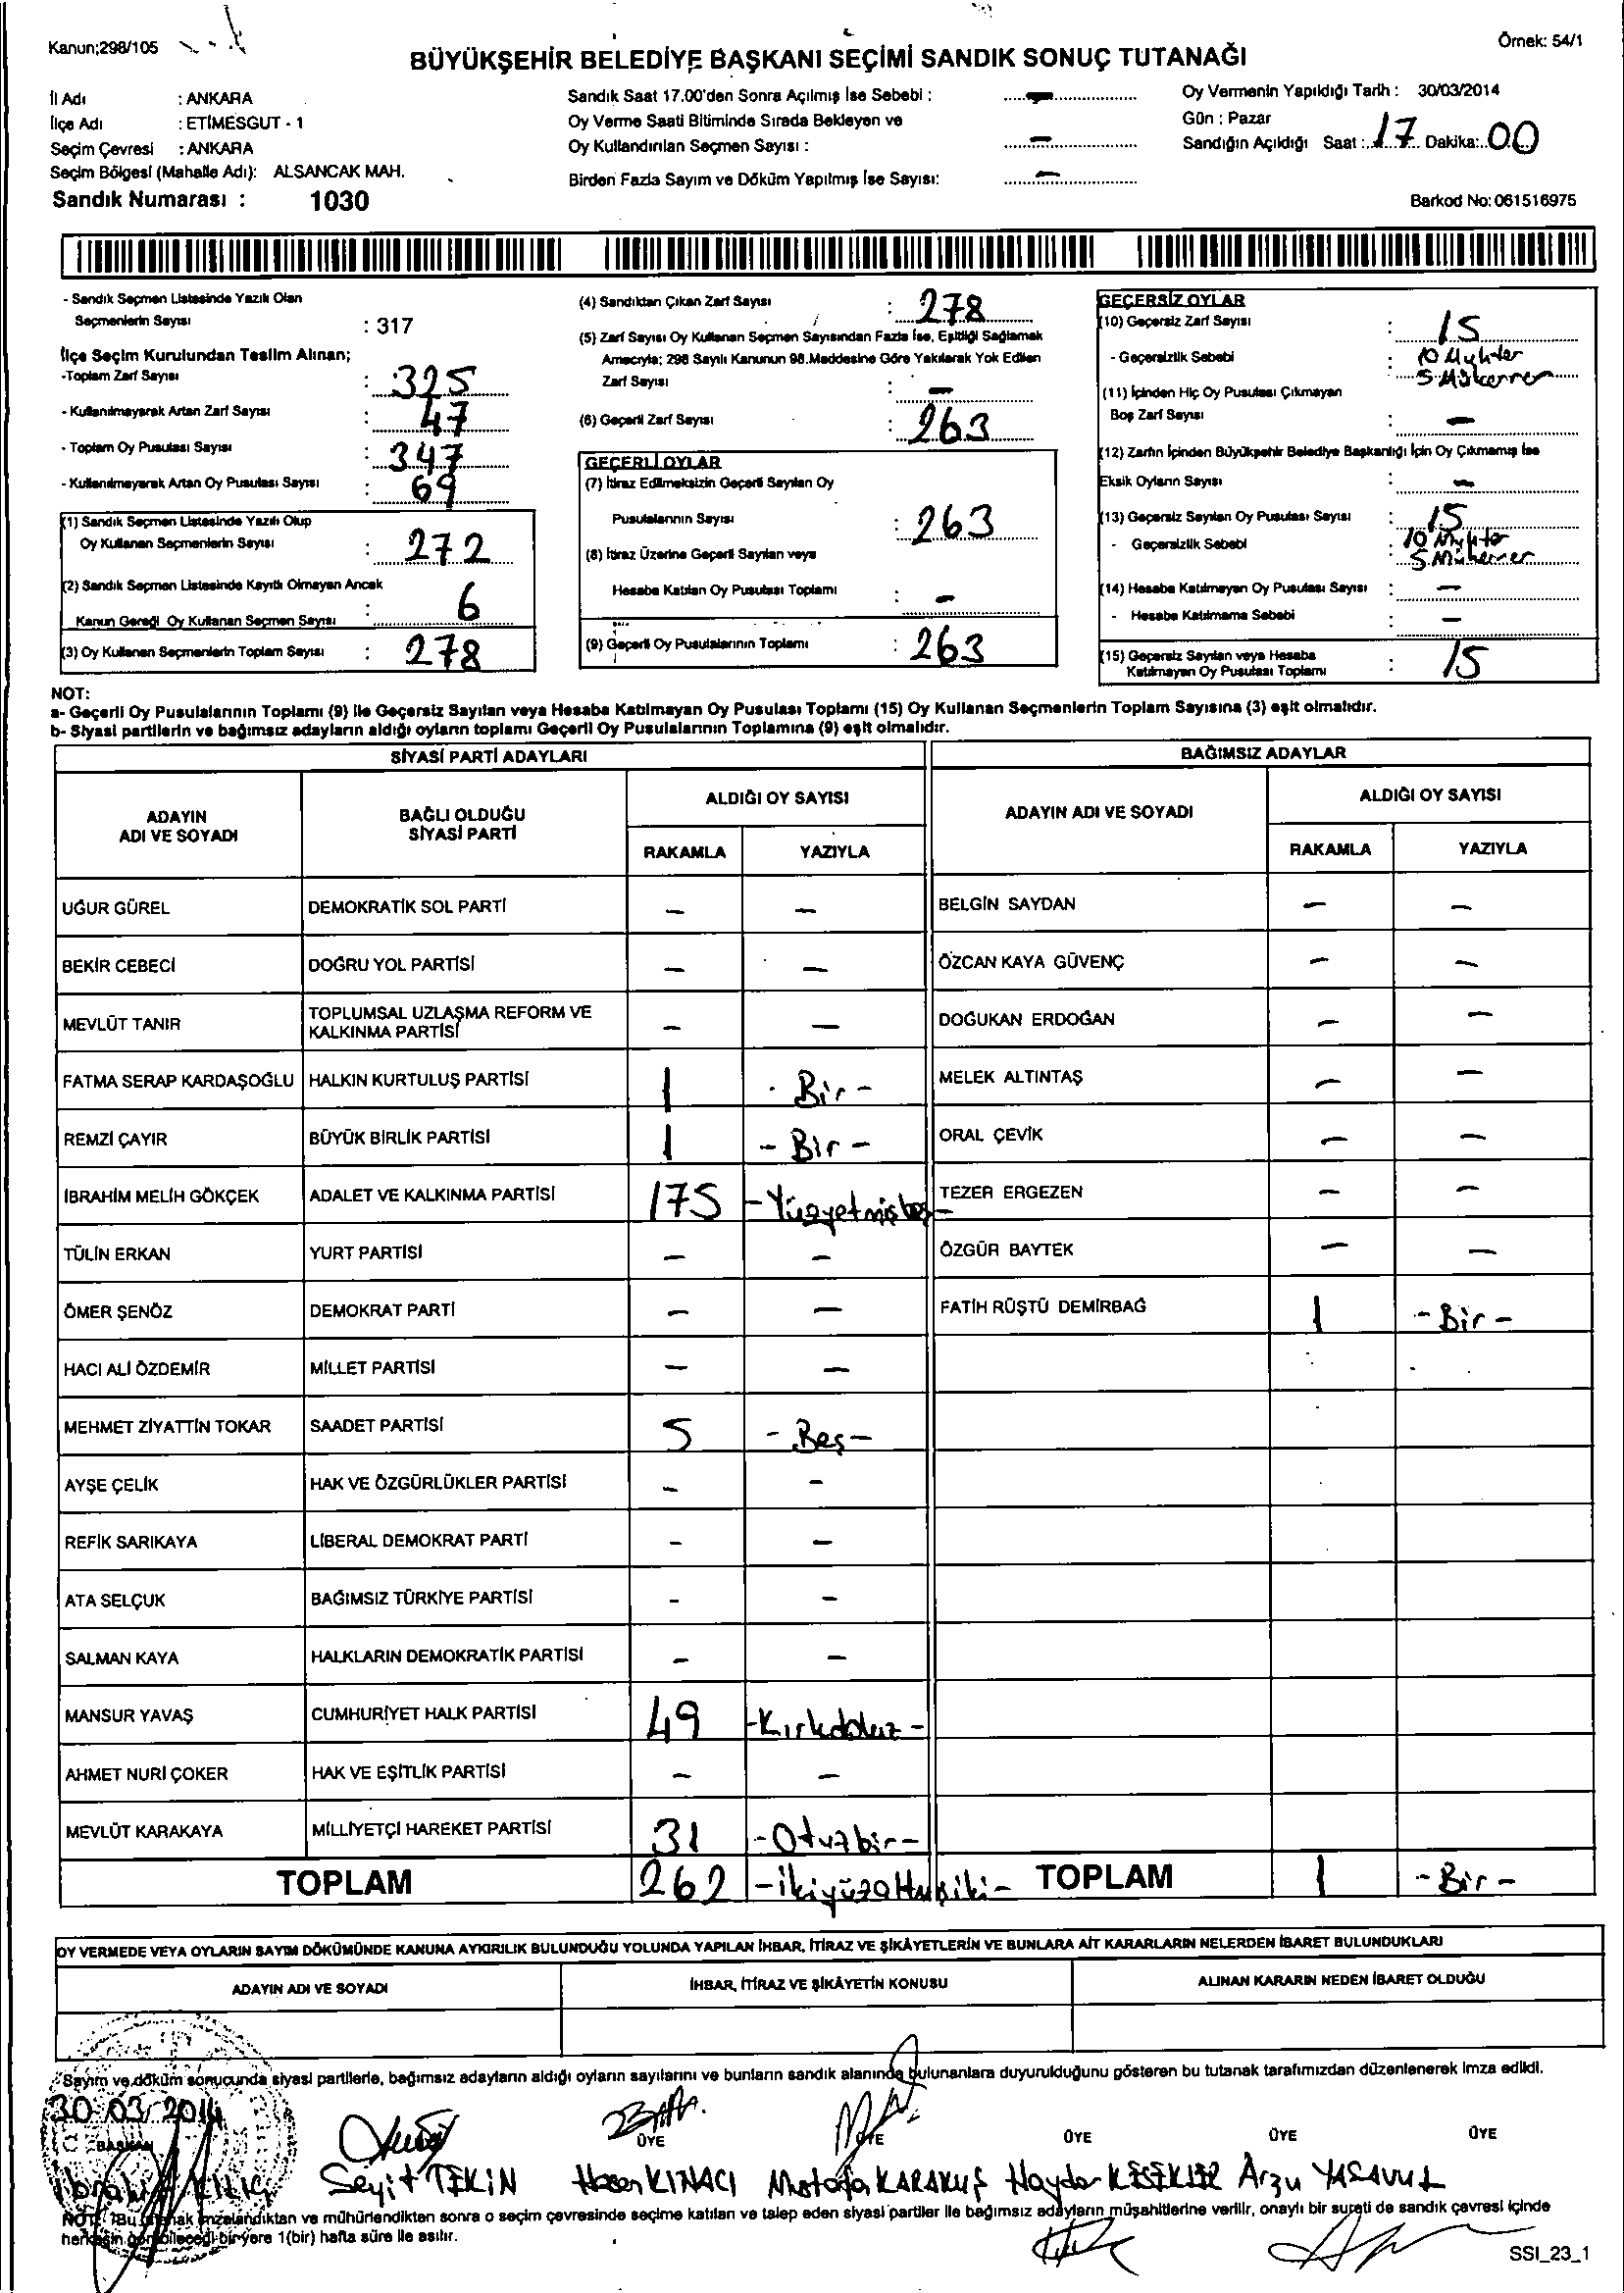 Kanun;298/105
Örnek: 54/1
BÜYÜKŞEHİR BELEDİYE BAŞKANI SEÇİMİ SANDIK SONUÇ TUTANAĞI
İl Adı : ANKARA
İlçe Adı : ETİMESGUT - 1
Seçim Çevresi : ANKARA
Seçim Bölgesi (Mahalle Adı): ALSANCAK MAH.
Sandık Numarası : 1030
Sandık Saat 17.00'den Sonra Açılmış İse Sebebi : -
Oy Verme Saati Bitiminde Sırada Bekleyen ve
Oy Kullandırılan Seçmen Sayısı : -
Birden Fazla Sayım ve Döküm Yapılmış İse Sayısı: -
Oy Vermenin Yapıldığı Tarih : 30/03/2014
Gün : Pazar
Sandığın Açıldığı Saat : 17 Dakika: 00
Barkod No: 061516975
- Sandık Seçmen Listesinde Yazılı Olan
Seçmenlerin Sayısı : 317
İlçe Seçim Kurulundan Teslim Alınan;
-Toplam Zarf Sayısı : 325
- Kullanılmayarak Artan Zarf Sayısı : 47
- Toplam Oy Pusulası Sayısı : 347
- Kullanılmayarak Artan Oy Pusulası Sayısı : 69
(1) Sandık Seçmen Listesinde Yazılı Olup
Oy Kullanan Seçmenlerin Sayısı : 272
(2) Sandık Seçmen Listesinde Kayıtlı Olmayan Ancak
Kanun Gereği Oy Kullanan Seçmen Sayısı : 6
(3) Oy Kullanan Seçmenlerin Toplam Sayısı : 278
(4) Sandıktan Çıkan Zarf Sayısı : 278
(5) Zarf Sayısı Oy Kullanan Seçmen Sayısından Fazla İse, Eşitliği Sağlamak
Amacıyla; 298 Sayılı Kanunun 98.Maddesine Göre Yakılarak Yok Edilen
Zarf Sayısı : -
(6) Geçerli Zarf Sayısı : 263
GEÇERLİ OYLAR
(7) İtiraz Edilmeksizin Geçerli Sayılan Oy
Pusulalarının Sayısı : 263
(8) İtiraz Üzerine Geçerli Sayılan veya
Hesaba Katılan Oy Pusulası Toplamı : -
(9) Geçerli Oy Pusulalarının Toplamı : 263
GEÇERSİZ OYLAR
(10) Geçersiz Zarf Sayısı : 15
- Geçersizlik Sebebi : 10 Muhtar
5 Mükerrer
(11) İçinden Hiç Oy Pusulası Çıkmayan
Boş Zarf Sayısı : -
(12) Zarfın İçinden Büyükşehir Belediye Başkanlığı İçin Oy Çıkmamış İse
Eksik Oyların Sayısı : -
(13) Geçersiz Sayılan Oy Pusulası Sayısı : 15
- Geçersizlik Sebebi : 10 Muhtar
5 Mükerrer
(14) Hesaba Katılmayan Oy Pusulası Sayısı : -
- Hesaba Katılmama Sebebi : -
(15) Geçersiz Sayılan veya Hesaba
Katılmayan Oy Pusulası Toplamı : 15
NOT:
a- Geçerli Oy Pusulalarının Toplamı (9) ile Geçersiz Sayılan veya Hesaba Katılmayan Oy Pusulası Toplamı (15) Oy Kullanan Seçmenlerin Toplam Sayısına (3) eşit olmalıdır.
b- Siyasi partilerin ve bağımsız adayların aldığı oyların toplamı Geçerli Oy Pusulalarının Toplamına (9) eşit olmalıdır.
SİYASİ PARTİ ADAYLARI
ADAYIN ADI VE SOYADI BAĞLI OLDUĞU SİYASİ PARTİ ALDIĞI OY SAYISI
RAKAMLA YAZIYLA
UĞUR GÜREL DEMOKRATİK SOL PARTİ - -
BEKİR CEBECİ DOĞRU YOL PARTİSİ - -
MEVLÜT TANIR TOPLUMSAL UZLAŞMA REFORM VE KALKINMA PARTİSİ - -
FATMA SERAP KARDAŞOĞLU HALKIN KURTULUŞ PARTİSİ 1 - Bir -
REMZİ ÇAYIR BÜYÜK BİRLİK PARTİSİ 1 - Bir -
İBRAHİM MELİH GÖKÇEK ADALET VE KALKINMA PARTİSİ 175 - Yüzyetmişbeş -
TÜLİN ERKAN YURT PARTİSİ - -
ÖMER ŞENÖZ DEMOKRAT PARTİ - -
HACI ALİ ÖZDEMİR MİLLET PARTİSİ - -
MEHMET ZİYATTİN TOKAR SAADET PARTİSİ 5 - Beş -
AYŞE ÇELİK HAK VE ÖZGÜRLÜKLER PARTİSİ - -
REFİK SARIKAYA LİBERAL DEMOKRAT PARTİ - -
ATA SELÇUK BAĞIMSIZ TÜRKİYE PARTİSİ - -
SALMAN KAYA HALKLARIN DEMOKRATİK PARTİSİ - -
MANSUR YAVAŞ CUMHURİYET HALK PARTİSİ 49 - Kırkdokuz -
AHMET NURİ ÇOKER HAK VE EŞİTLİK PARTİSİ - -
MEVLÜT KARAKAYA MİLLİYETÇİ HAREKET PARTİSİ 31 - Otuzbir -
TOPLAM 262 - ikiyüzaltmışiki -
BAĞIMSIZ ADAYLAR
ADAYIN ADI VE SOYADI ALDIĞI OY SAYISI
RAKAMLA YAZIYLA
BELGİN SAYDAN - -
ÖZCAN KAYA GÜVENÇ - -
DOĞUKAN ERDOĞAN - -
MELEK ALTINTAŞ - -
ORAL ÇEVİK - -
TEZER ERGEZEN - -
ÖZGÜR BAYTEK - -
FATİH RÜŞTÜ DEMİRBAĞ 1 - Bir -
TOPLAM 1 - Bir -
OY VERMEDE VEYA OYLARIN SAYIM DÖKÜMÜNDE KANUNA AYKIRILIK BULUNDUĞU YOLUNDA YAPILAN İHBAR, İTİRAZ VE ŞİKÂYETLERİN VE BUNLARA AİT KARARLARIN NELERDEN İBARET BULUNDUKLARI
ADAYIN ADI VE SOYADI İHBAR, İTİRAZ VE ŞİKÂYETİN KONUSU ALINAN KARARIN NEDEN İBARET OLDUĞU
Sayım ve döküm sonucunda siyasi partilerle, bağımsız adayların aldığı oyların sayılarını ve bunların sandık alanında bulunanlara duyurulduğunu gösteren bu tutanak tarafımızdan düzenlenerek imza edildi.
30 03/2014
BAŞKAN ÜYE ÜYE ÜYE ÜYE ÜYE
İbrahim KILIÇ Seyit TEKİN Hasan KINACI Mustafa KARAKUŞ Haydar Arzu YASAVUL
NOT: Bu tutanak imzalandıktan ve mühürlendikten sonra o seçim çevresinde seçime katılan ve talep eden siyasi partiler ile bağımsız adayların müşahitlerine verilir, onaylı bir sureti de sandık çevresi içinde
herkesin görebileceği bir yere 1(bir) hafta süre ile asılır.
SSI_23_1